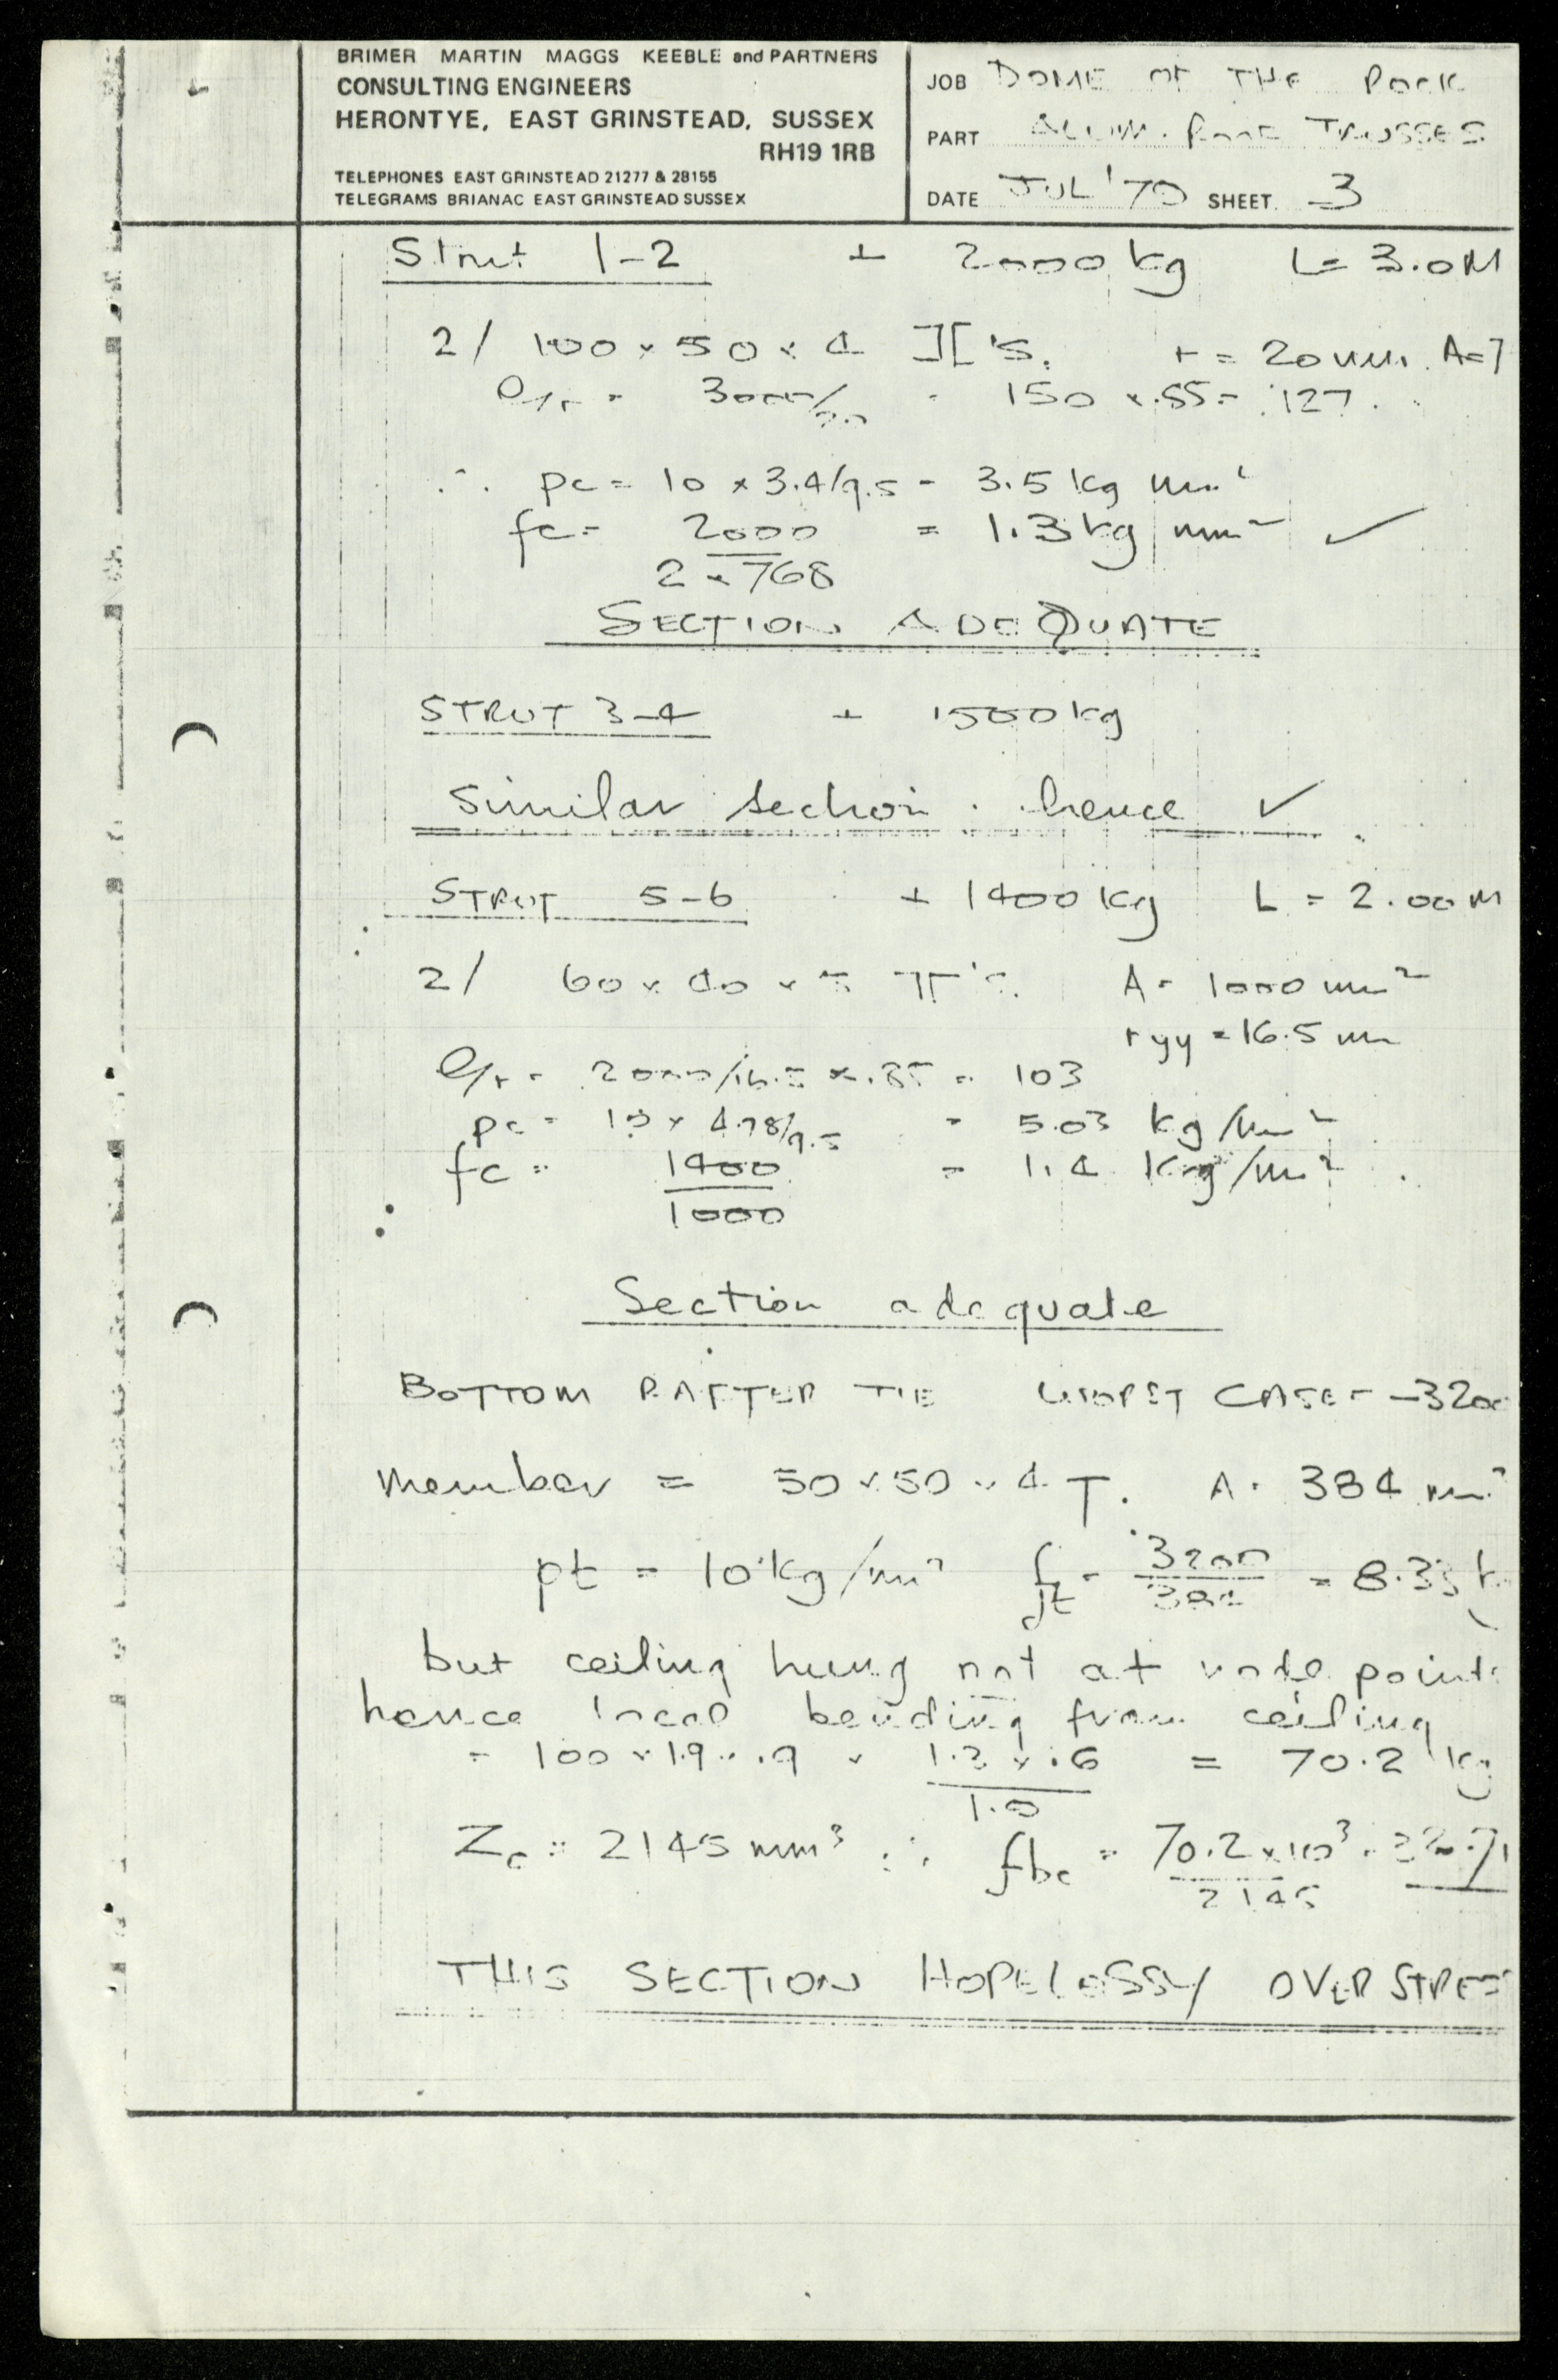 BRIMER MARTIN MAGGS KEEBLE and PARTNERS
CONSULTING ENGINEERS
HERONTYE, EAST GRINSTEAD, SUSSEX
RH19 1RB
TELEPHONES EAST GRINSTEAD 21277 & 28155
TELEGRAMS BRIANAC EAST GRINSTEAD SUSSEX
JOB DOME OF THE ROCK
PART ALUM. ROOF TRUSSES
DATE JUL '70 SHEET. 3
Strut 1-2 + 2000 kg L= 3.0M
2/ 100 x 50 x 4 ][ 's. r = 20 mm. A=7
l/r = 3000/20 = 150 x .85 = 127.
∴ pc = 10 x 3.4/9.5 = 3.5 kg mm²
fc = 2000 = 1.3 kg/mm² ✓
2 x 768
SECTION ADEQUATE
STRUT 3-4 + 1500 kg
Similar section . hence ✓
STRUT 5-6 + 1400 kg L = 2.00 M
2/ 60 x 40 x 5 ㄱㄏ's. A = 1000 mm²
ryy = 16.5 mm
l/r = 2000/16.5 x .85 = 103
pc = 10 x 4.78/9.5 = 5.03 kg/mm²
fc = 1400 = 1.4 kg/mm²
1000
Section adequate
BOTTOM RAFTER TIE WORST CASE = -3200
member = 50 x 50 x 4 T. A = 384 mm²
pt = 10 kg/mm² ft = 3200 = 8.33 k
384
but ceiling hung not at node points
hence local bending from ceiling
= 100 x 1.9 x .9 x 1.2 x .6 = 70.2 kg
Zc = 2145 mm³ ∴ fbc = 70.2 x 10³ = 32.71
2145
THIS SECTION HOPELESSY OVERSTRES